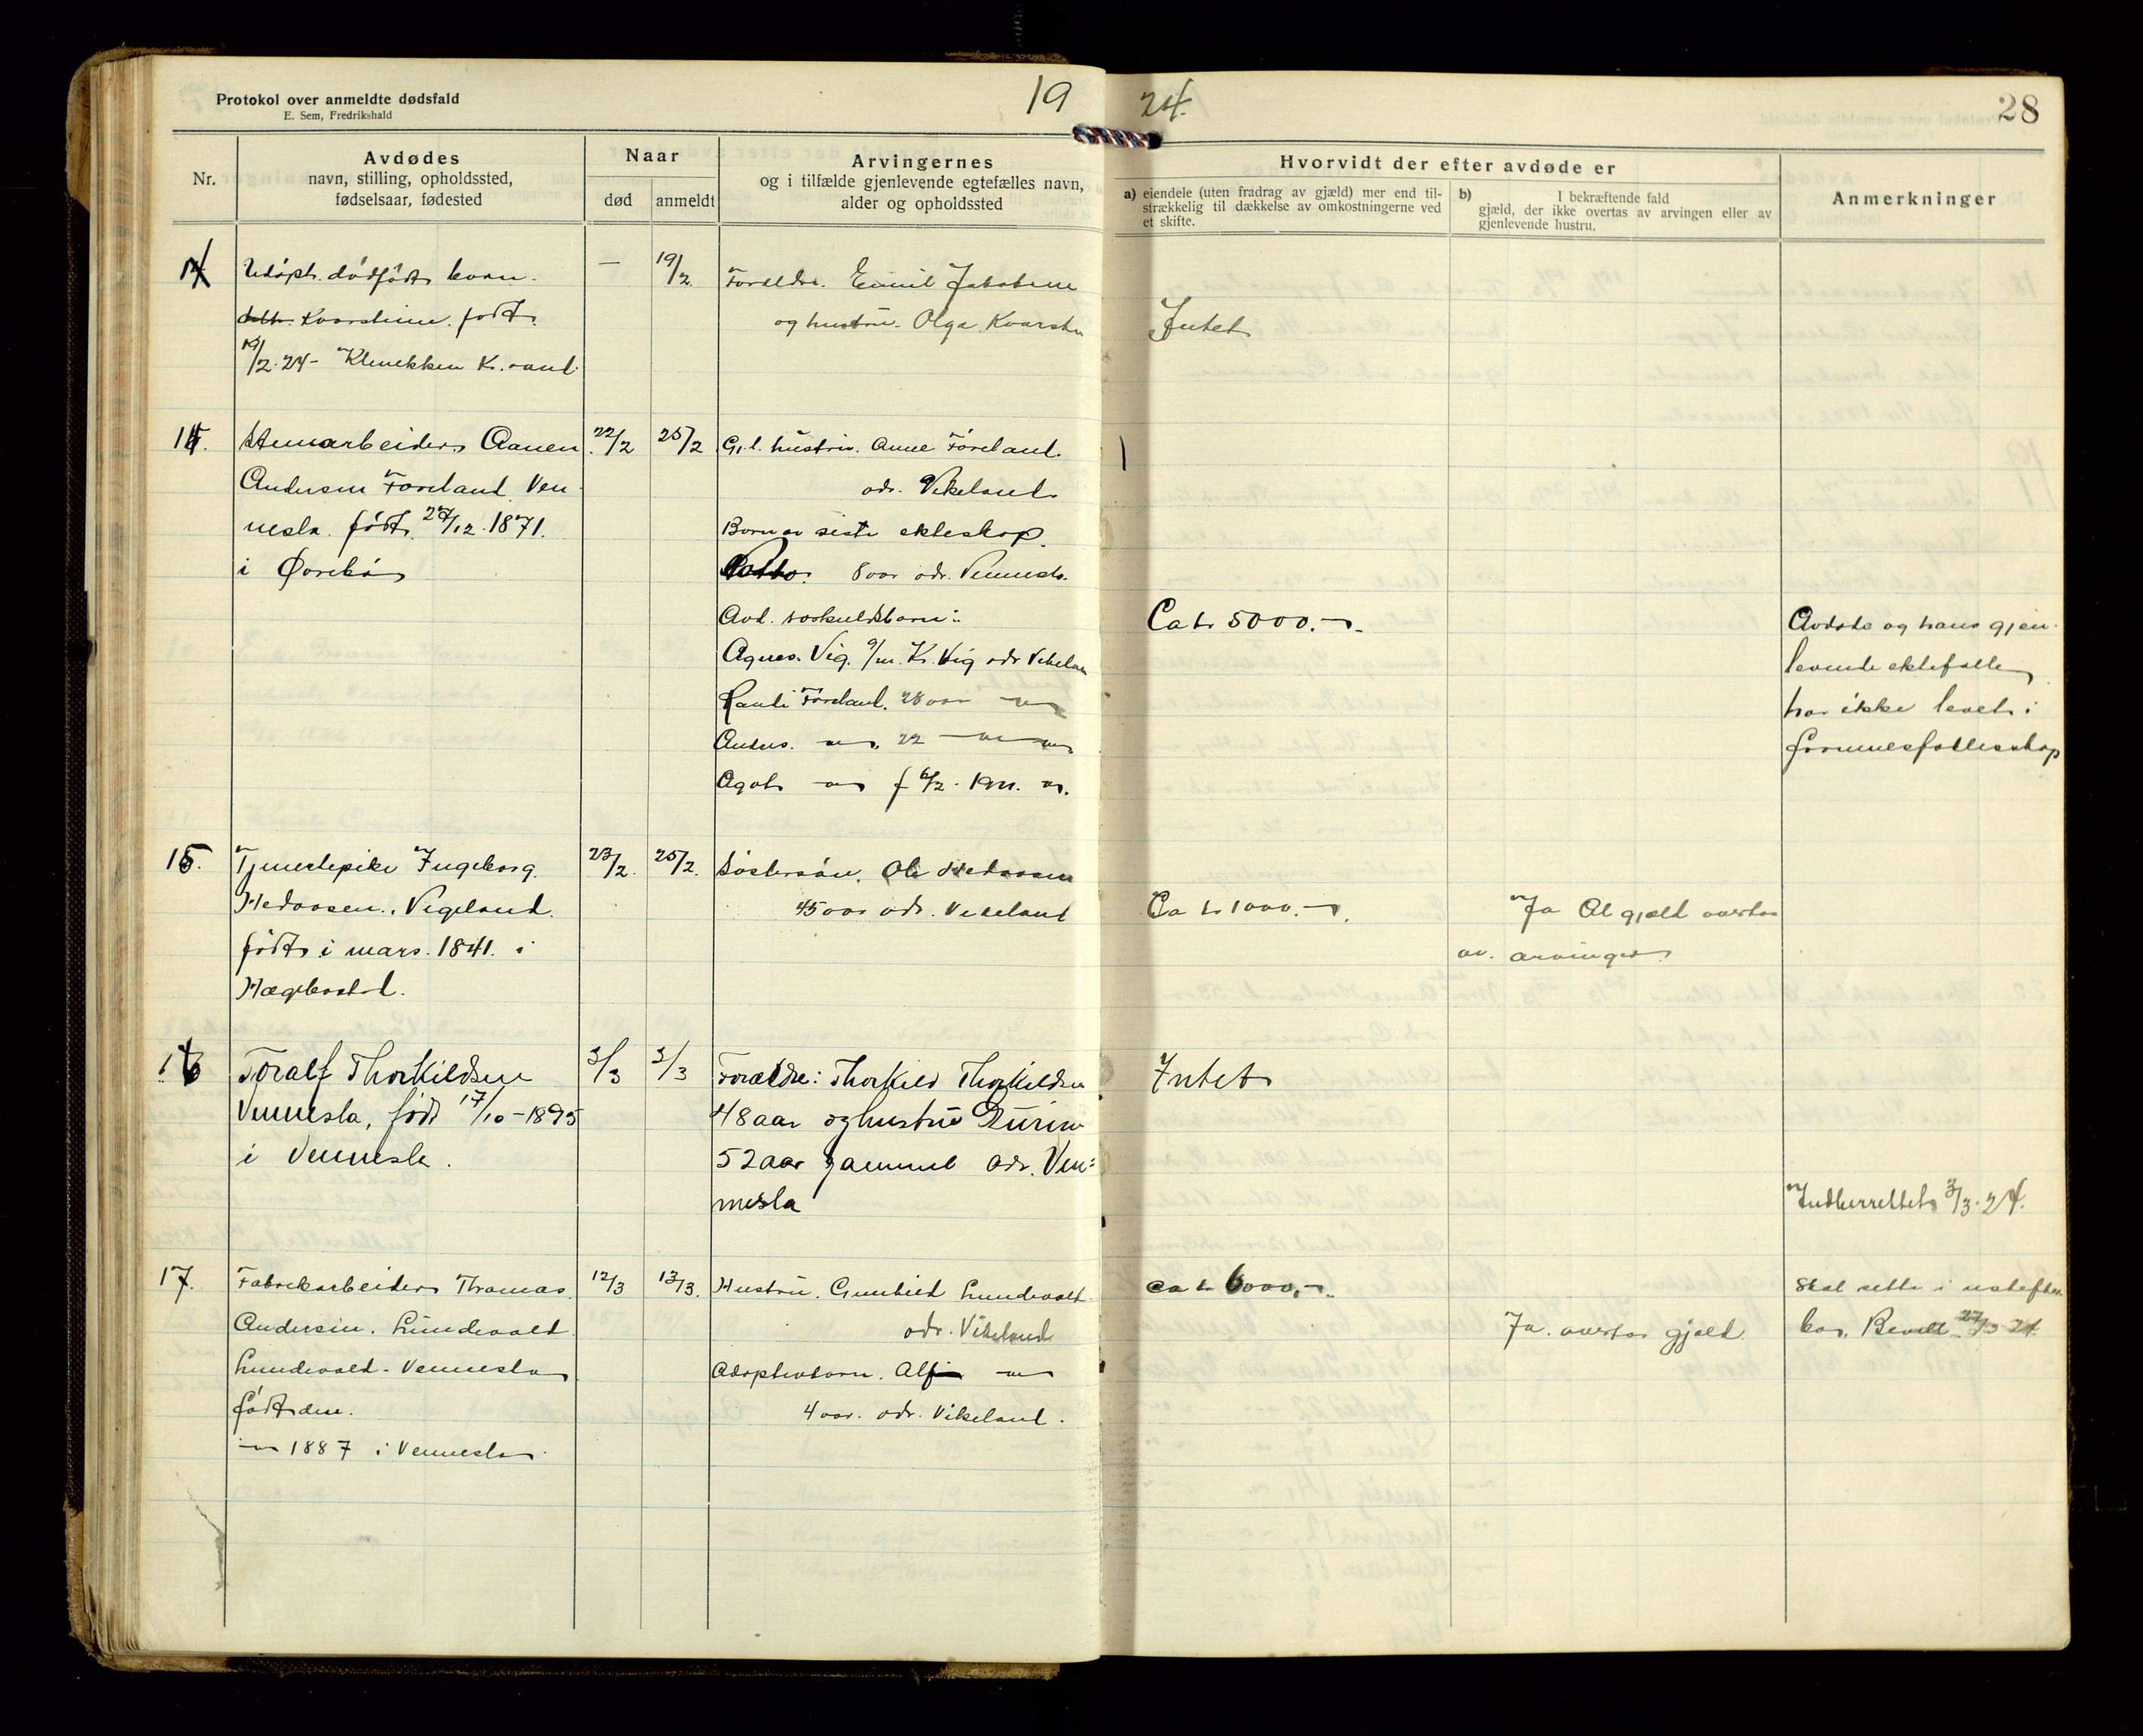 Protokol over anmeldte dødsfald
E. Sem, Fredrikshald
19
24.
28
Nr.
Avdødes
navn, stilling, opholdssted,
fødselsaar, fødested
Naar
død
anmeldt
Arvingernes
og i tilfælde gjenlevende egtefælles navn,
alder og opholdssted
Hvorvidt der efter avdøde er
a) eiendele (uten fradrag av gjæld) mer end til-
strækkelig til dækkelse av omkostningerne ved
et skifte.
b) I bekræftende fald
gjæld, der ikke overtas av arvingen eller av
gjenlevende hustru.
Anmerkninger
Udøpt. dødfødt barn.
født
/2.24 - K.sand.
—
19/2.
Foreldre. Emil Jakobsen
og hustru. Olga
Intet
14.
Stenarbeider Aanen
Andersen Føreland. Ven-
nesla. født 27/12.1871.
i Øvrebø
22/2
25/2
G.l. hustru. Anne Føreland.
adr. Vikeland
Barn av siste ekteskap.
8 aar adr. Vennesla.
Avd. særkuldsbarn:
Agnes. Vig. g/m. K. Vig adr Vikeland
Føreland. 28 aar — " —
Anders. — " — 22 — " —
Agot — " — f 6/2.
Ca kr 5000.-
Avdøde og hans gjen-
levende ektefælle
har ikke levet i
formuesfællesskap
15.
Tjenestepike Ingeborg.
Hedaasen. Vigeland.
født i mars. 1841. i
Hægebostad.
23/2.
25/2.
Søstersøn. Ole Hedaasen
45 aar adr. Vikeland
Ca kr 1000.-
Ja Al gjæld overtas
av. arvinger
16
Toralf Thorkildsen
Vennesla, født 17/10-1895
i Vennesla.
3/3
3/3
Forældre: Thorkild Thorkildsen
48 aar og hustru Gurine
52 aar gammel adr. Ven=
nesla
Intet
Indberettet 3/3.24.
17.
Fabrikarbeider Thomas.
Andersen. Lundevold
Lundevold - Vennesla
født den.
— " — 1887 i Vennesla.
12/3
13/3.
Hustru. Gunhild Lundevold.
adr. Vikeland
Adoptivbarn. Alf — " —
4 aar. adr. Vikeland.
Ca kr 6000,-
Ja. overtar gjæld
Skal sitte i uskiftet
bo. Bevill 27/3 24.